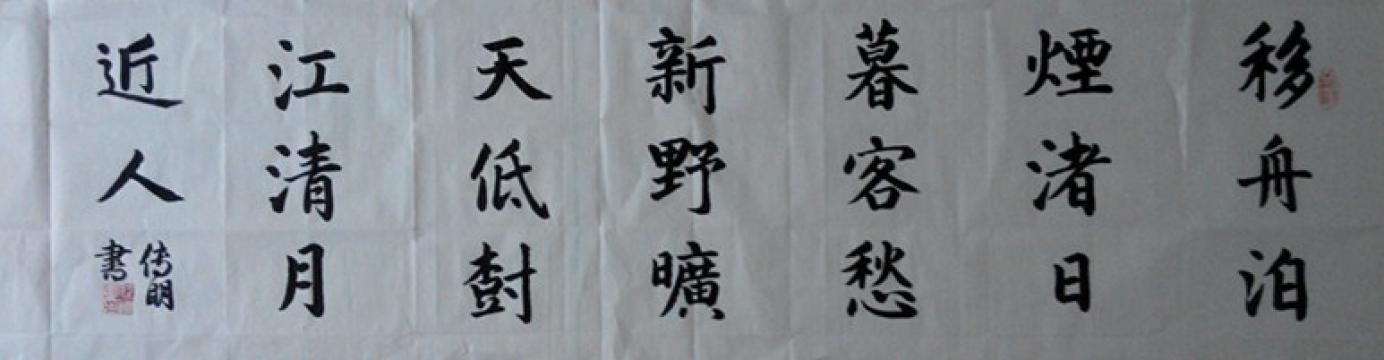 移舟泊
煙渚日
暮客愁
新野曠
天低樹
江清月
近人
传明
書